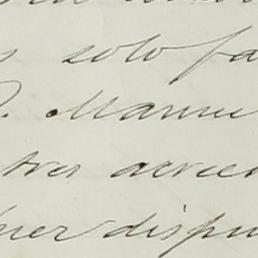 s solo fa
D. Manue
tres acreed
ner dispu